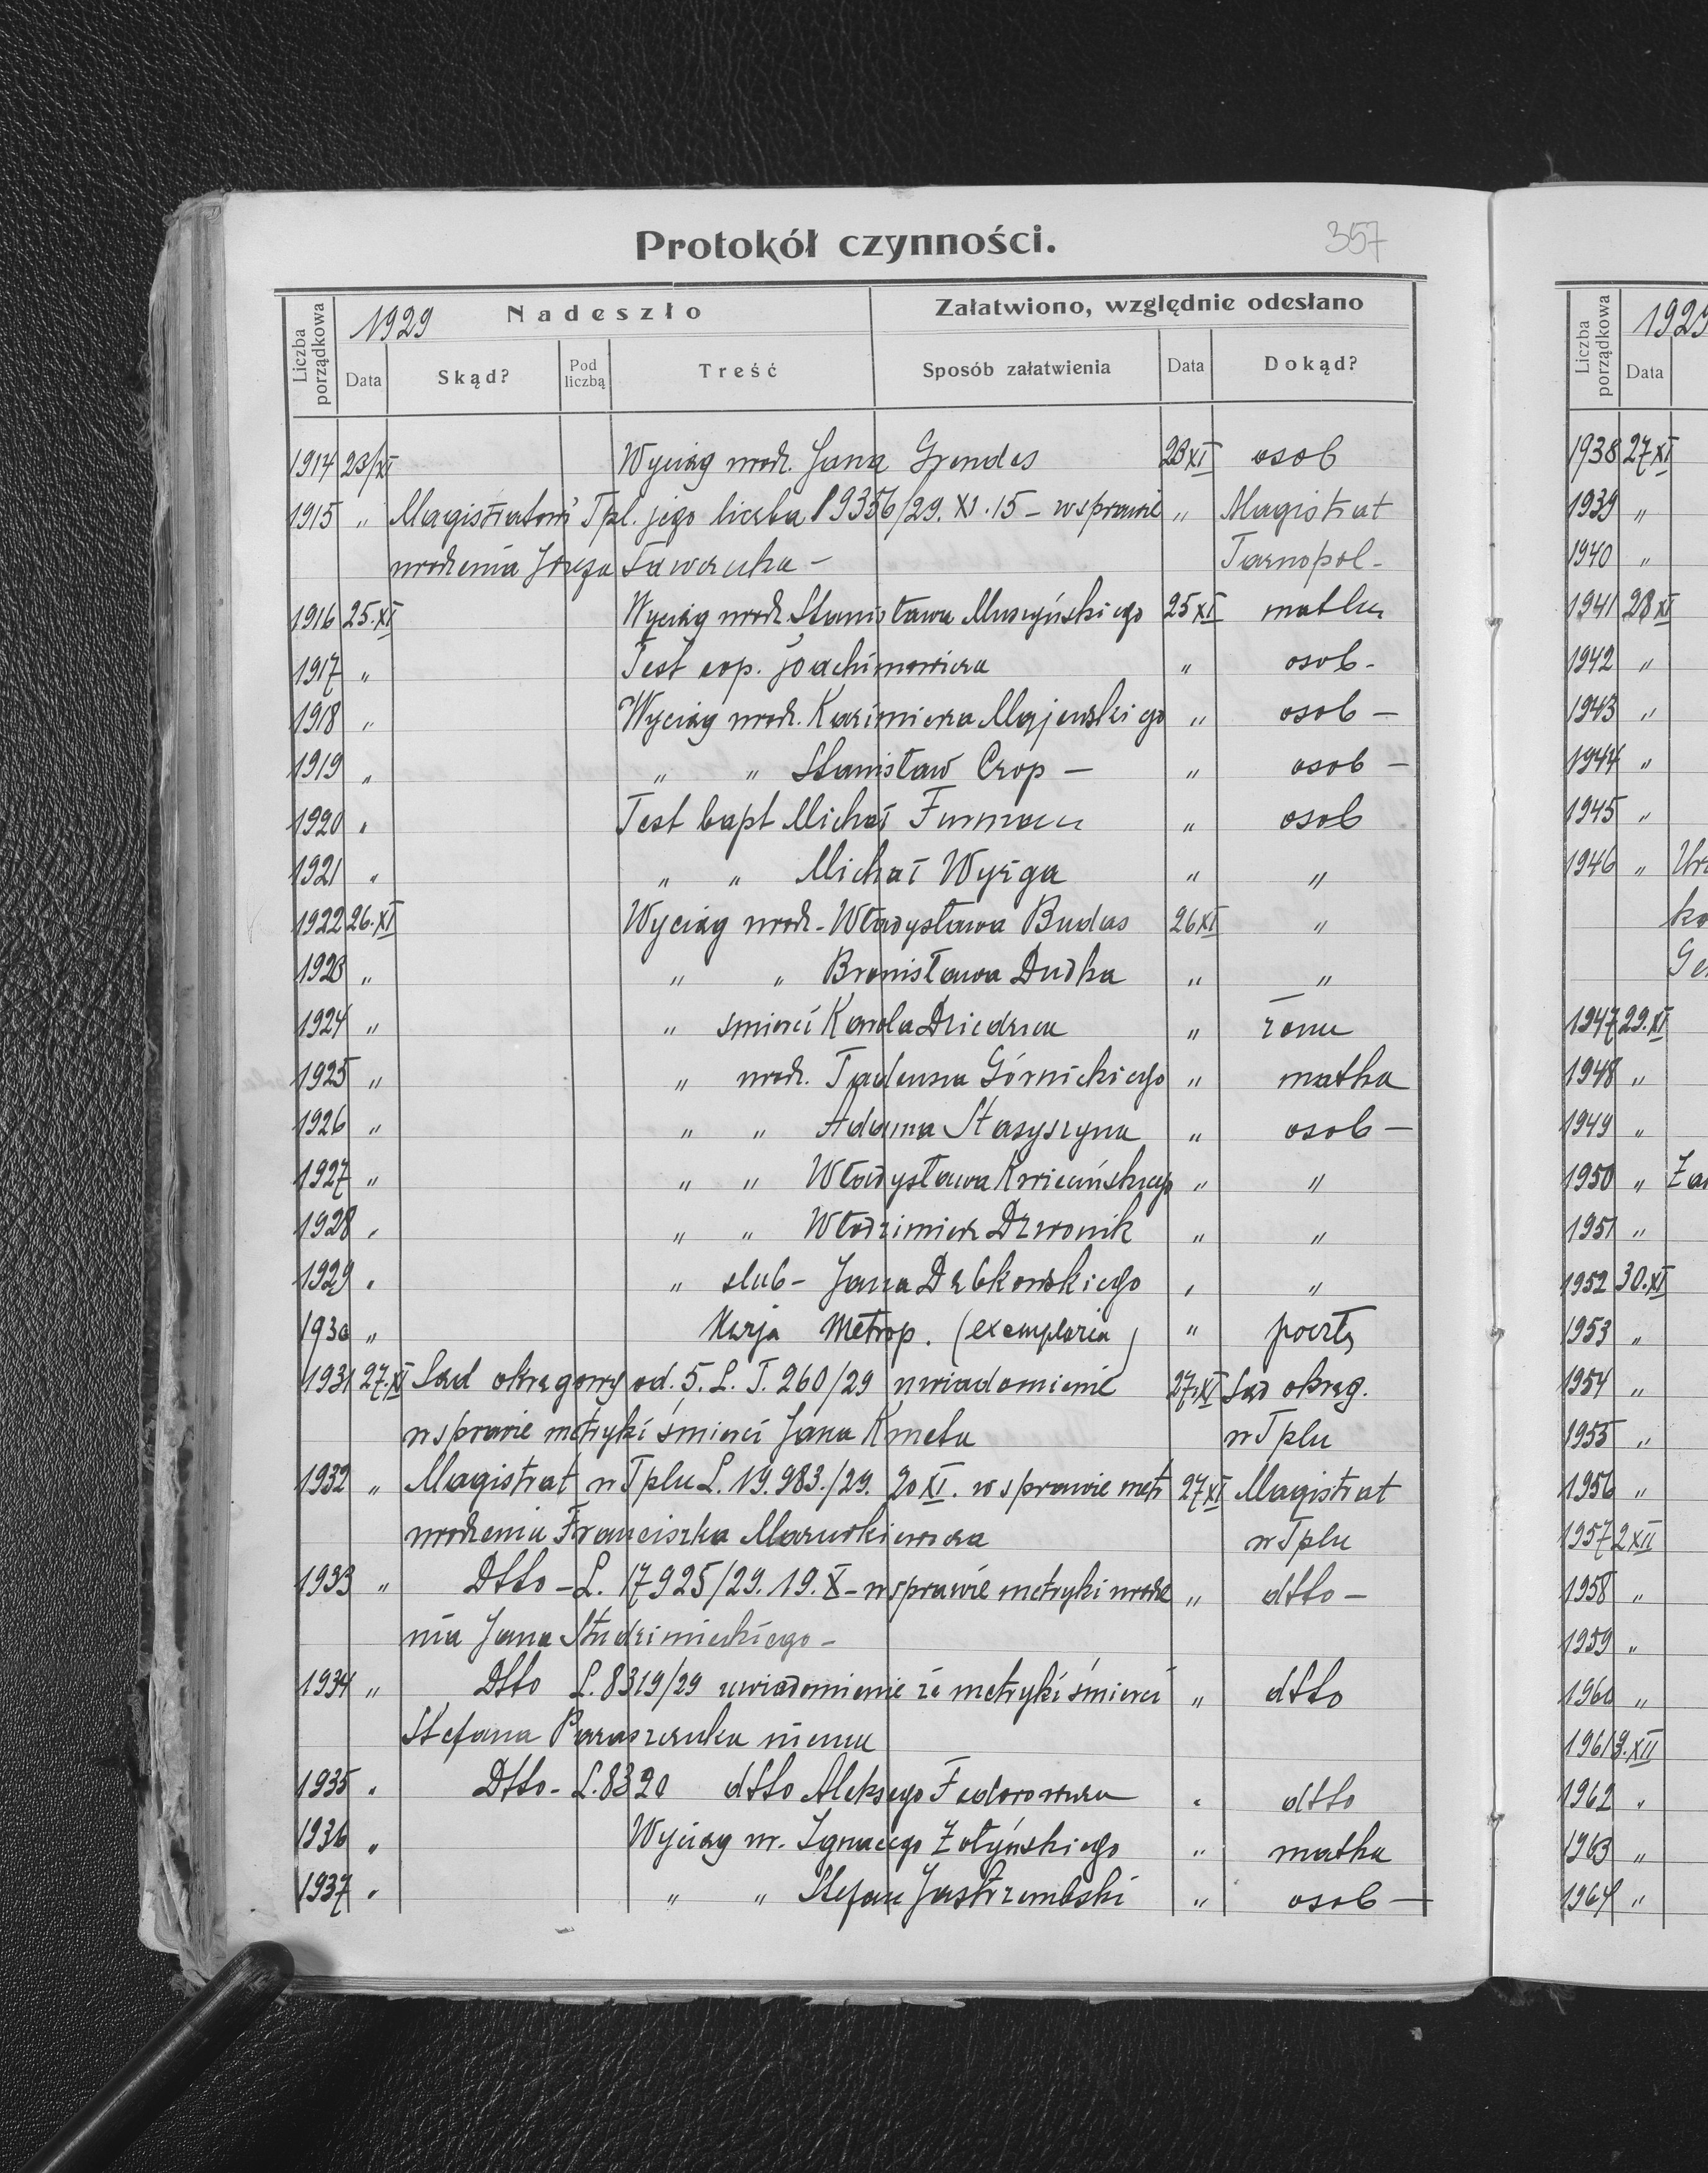 Protokół czynności.
357
Liczba porządkowa 1929 Nadeszło Załatwiono, względnie odesłano
Data Skąd? Pod liczbą Treść Sposób załatwienia Data Dokąd?
1914 23/XI Wyciąg urodz. Jana Grendes 23 XI osob
1915 " Magistratowi Tpl. jego liczba 19356/29. XI. 15 – w sprawie " Magistrat
urodzenia Józefa Sawczuka – Tarnopol –
1916 25.XI Wyciąg urodz. Stanisława Muszyńskiego 25 XI matka
1917 " Test cop. Joachimowicza " osob –
1918 " Wyciąg urodz. Kazimierza Majewskiego " osob –
1919 " " " Stanisław Czop – " osob –
1920 " Test bapt Michał Furman " osob
1921 " " " Michał Wyżga " "
1922 26.XI Wyciąg urodz – Władysława Budas 26 XI "
1923 " " " Bronisława Dudka " "
1924 " " śmierci Karola Dziedzica " żona
1925 " " urodz. Tadeusza Górnickiego " matka
1926 " " " Adama Stasyszyna " osob –
1927 " " " Władysława " "
1928 " " " Włodzimierz Dzwonik " "
1929 " " slub – Jana Dąbkowskiego " "
1930 " Kurja Metrop. (exemplaria) " pocztą
1931 27.XI Sąd okręgowy od. 5. L. T. 260/29 uwiadomienie 27.XI Sąd okręg.
w sprawie metryki śmierci Jana Kmeta w Tplu
1932 " Magistrat w Tplu L. 19.983./29. 20 XI. w sprawie metr 27 XI Magistrat
urodzenia Franciszka Mazurkiewicza w Tplu
1933 " Dtto – L. 17925/29. 19. X – w sprawie metryki urodze " dtto –
nia Jana –
1934 " Dtto L. 8319/29 uwiadomienie że metryki śmierci " dtto
Stefana Paraszczuka niema
1935 " Dtto – L. 8320 dtto Aleksego Fedorowicza " dtto
1936 " Wyciąg ur. Ignacego Żołyńskiego " matka
1937 " " " Stefan Jastrzembski " osob –
Liczba porządkowa 1929
Data
1938 27 XI
1939 "
1940 "
1941 28 XI
1942 "
1943 "
1944 "
1945 "
1946 " Urz
ko
Ge
1947 29.XI
1948 "
1949 "
1950 " Za
1951 "
1952 30.XI
1953 "
1954 "
1955 "
1956 "
1957 2 XII
1958 "
1959 "
1960 "
1961 3.XII
1962 "
1963 "
1964 "